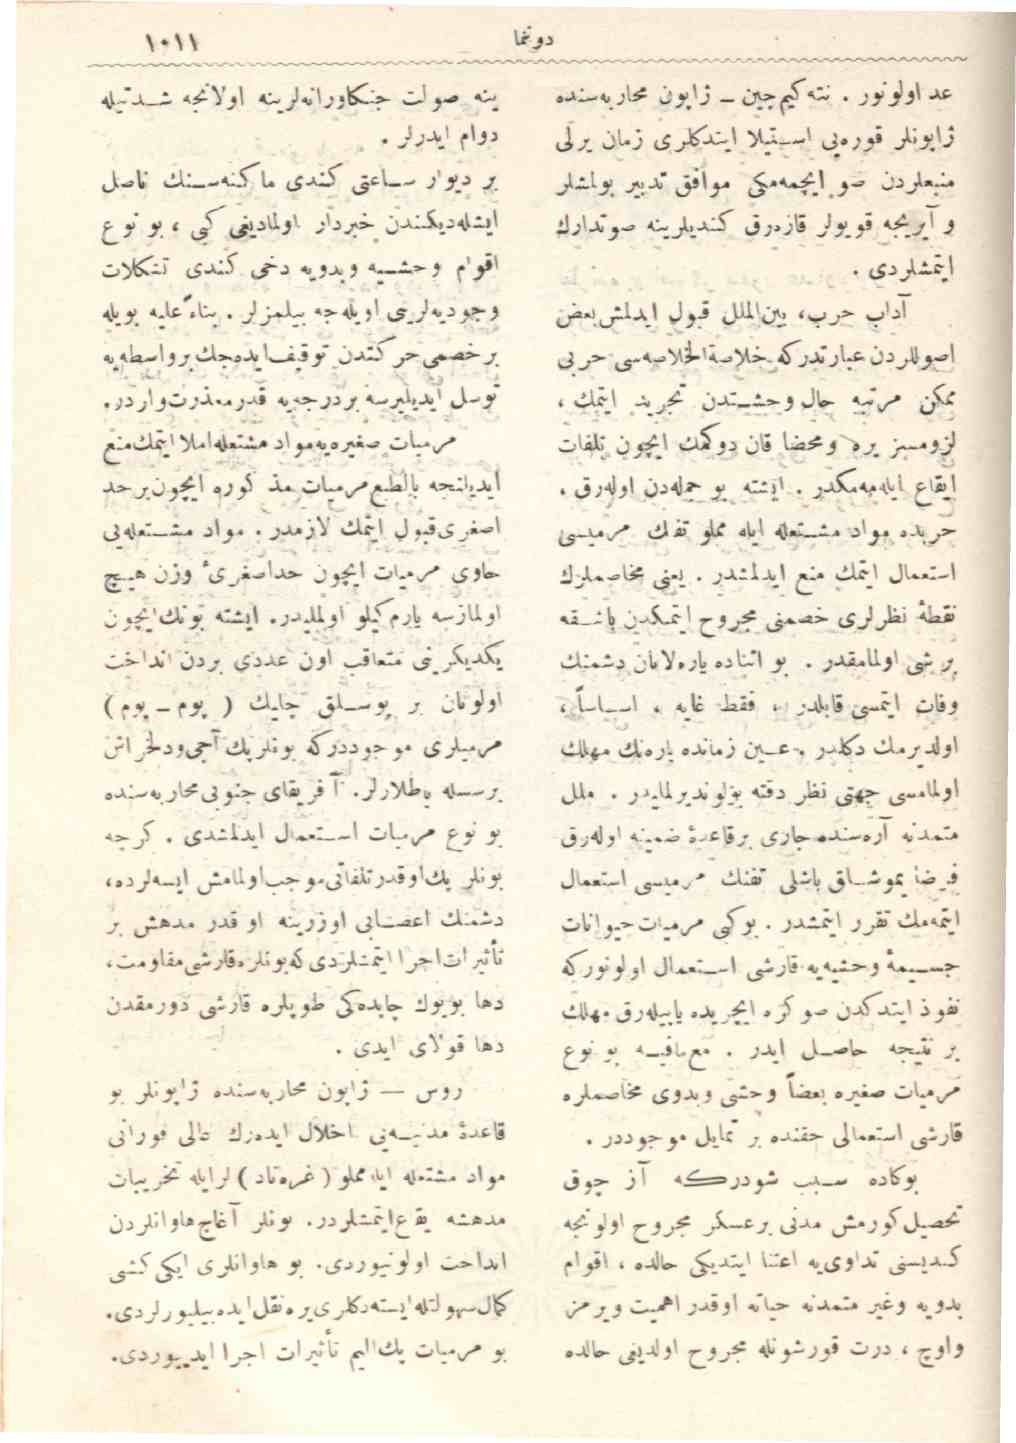 دوننما
١٠١١
عد اولونور . نته‌كيم چين ــ ژاپون محاربه‌سنده
ژاپونلر قوره‌يى اســتيلا ايتدكلرى زمان يرلى
منبعلردن صو ايچمه‌مكى موافق تدبير بولمشلر
و آيريجه قويولر قازه‌رق كنديلرينه صو تدارك
ايتمشلردى .
آداب حرب، بين‌الملل قبول ايدلمش بعض
اصوللردن عبارتدركه خلاصةالخلاصه‌سى حربى
ممكن مرتبه حال وحشــتدن تجريد ايتمك ،
لزومسز يره ومحضا قان دوكمك ايچون تلفات
ايقاع ايله‌مه‌مكدر . ايشته بو جمله‌دن اوله‌رق .
حربده مواد مشــتعله ايله مملو تفنك مرميسى
استعمال ايتمك منع ايدلمشدر . يعنى مخاصملرك
نقطهٔ نظرلرى خصمنى مجروح ايتمكدن باشــقه
بر شى اولمامقدر . بو اثناده ياره‌لانان دشمنك
وفات ايتمسى قابلدر ، فقط غايه ، اســاساً ،
اولديرمك دكلدر . عــين زمانده ياره‌نك مهلك
اولمامسى جهتى نظر دقته بولونديرلمليدر . ملل
متمدنه آره‌سنده جارى بر قاعدهٔ ضمنيه اوله‌رق
فرضا يموشــاق باشلى تفنك مرميسى استعمال
ايتمه‌مك تقرر ايتمشدر . بوكبى مرميات حيوانات
جســيمهٔ وحشيه‌يه قارشى اســتعمال اولونوركه
نفوذ ايتدكدن صوكره ايچريده ياييله‌رق مهلك
بر نتيجه حاصــل ايدر . مع‌مافيــه بو نوع
مرميات صغيره بعضاً وحشى وبدوى مخاصملره
قارشى استعمالى حقنده بر تمايل موجوددر .
بوكاده ســبب شودركــه آز چوق
تحصيل كورمش مدنى بر عسكر مجروح اولونجه
كنديسنى تداوى‌يه اعتنا ايتديكى حالده ، اقوام
بدويه وغير متمدنه حياته اوقدر اهميت ويرمز
واوچ ، درت قورشونله مجروح اولديغى حالده
ينه صولت جنكاورانه‌لرينه اولانجه شــدتيله
دوام ايدرلر .
بر ديوار ســاعتى كندى ماكنه‌ســنك ناصل
ايشله‌ديكندن خبردار اولماديغى كبى ، بو نوع
اقوام وحشــيه وبدويه دخى كندى تشكلات
وجوديه‌لرينى اويله‌جه بيلمزلر . بناءً عليه بويله
بر خصمى حركتدن توقيف ايده‌جك بر واسطه‌يه
توسل ايديليرسه بر درجه‌يه قدر معذرت واردر.
مرميات صغيره‌يه مواد مشتعله املا ايتمك منع
ايديلنجه بالطبع مرميات مذكوره ايچون بر حد
اصغرى قبول ايتمك لازمدر . مواد مشــتعله‌يى
حاوى مرميات ايچون حد اصغرىٔ وزن هيــچ
اولمازسه يارم كيلو اولمليدر. ايشته بونك ايچون
يكديكرينى متعاقب اون عددى بردن انداخت
اولونان بر پوســلق چاپك ( پوم ــ پوم )
مرميلرى موجوددركه بونلر پك آجى ودلخراش
برسسله پاطلارلر. آفريقاى جنوبى محاربه‌سنده
بو نوع مرميات اســتعمال ايدلمشدى . كرچه
بونلر پك اوقدر تلفاتى موجب اولمامش ايسه‌لرده،
دشمنك اعصــابى اوزرينه او قدر مدهش بر
تأثيرات اجرا ايتمشلردى كه بونلره قارشى مقاومت،
دها بويوك چاپده‌كى طوپلره قارشى دورمقدن
دها قولاى ايدى .
روس — ژاپون محاربه‌سنده ژاپونلر بو
قاعدهٔ مدنيــه‌يى اخلال ايده‌رك عالى فورانى
مواد مشتعله ايله مملو ( غره‌ناد ) لر ايله تخريبات
مدهشه ايقاع ايتمشلردر. بونلر آغاج هاوانلردن
انداخت اولونيوردى. بو هاوانلرى ايكى كشى
كمال سهولتله ايسته‌دكلرى يره نقل ايده‌بيليورلردى.
بو مرميات پك اليم تأثيرات اجرا ايدييوردى.